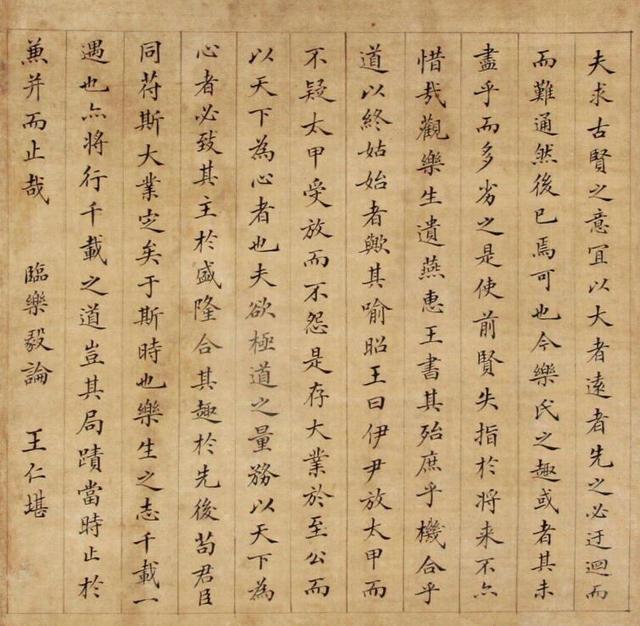 夫求古賢之意冝以大者遠者先之必迂迴而
而難通然後已焉可也今樂氏之趣或者其未
盡乎而多劣之是使前賢失指於將来不亦
惜哉觀樂生遺燕惠王書其殆庶乎機合乎
道以終姑始者歟其喻昭王曰伊尹放太甲而
不疑太甲受放而不怨是存大業於至公而
以天下為心者也夫欲極道之量務以天下為
心者必致其主於盛隆合其趣於先後苟君臣
同苻斯大業定矣于斯時也樂生之志千載一
遇也亦將行千載之道豈其局蹟當時止於
兼并而止哉 臨樂毅論 王仁堪